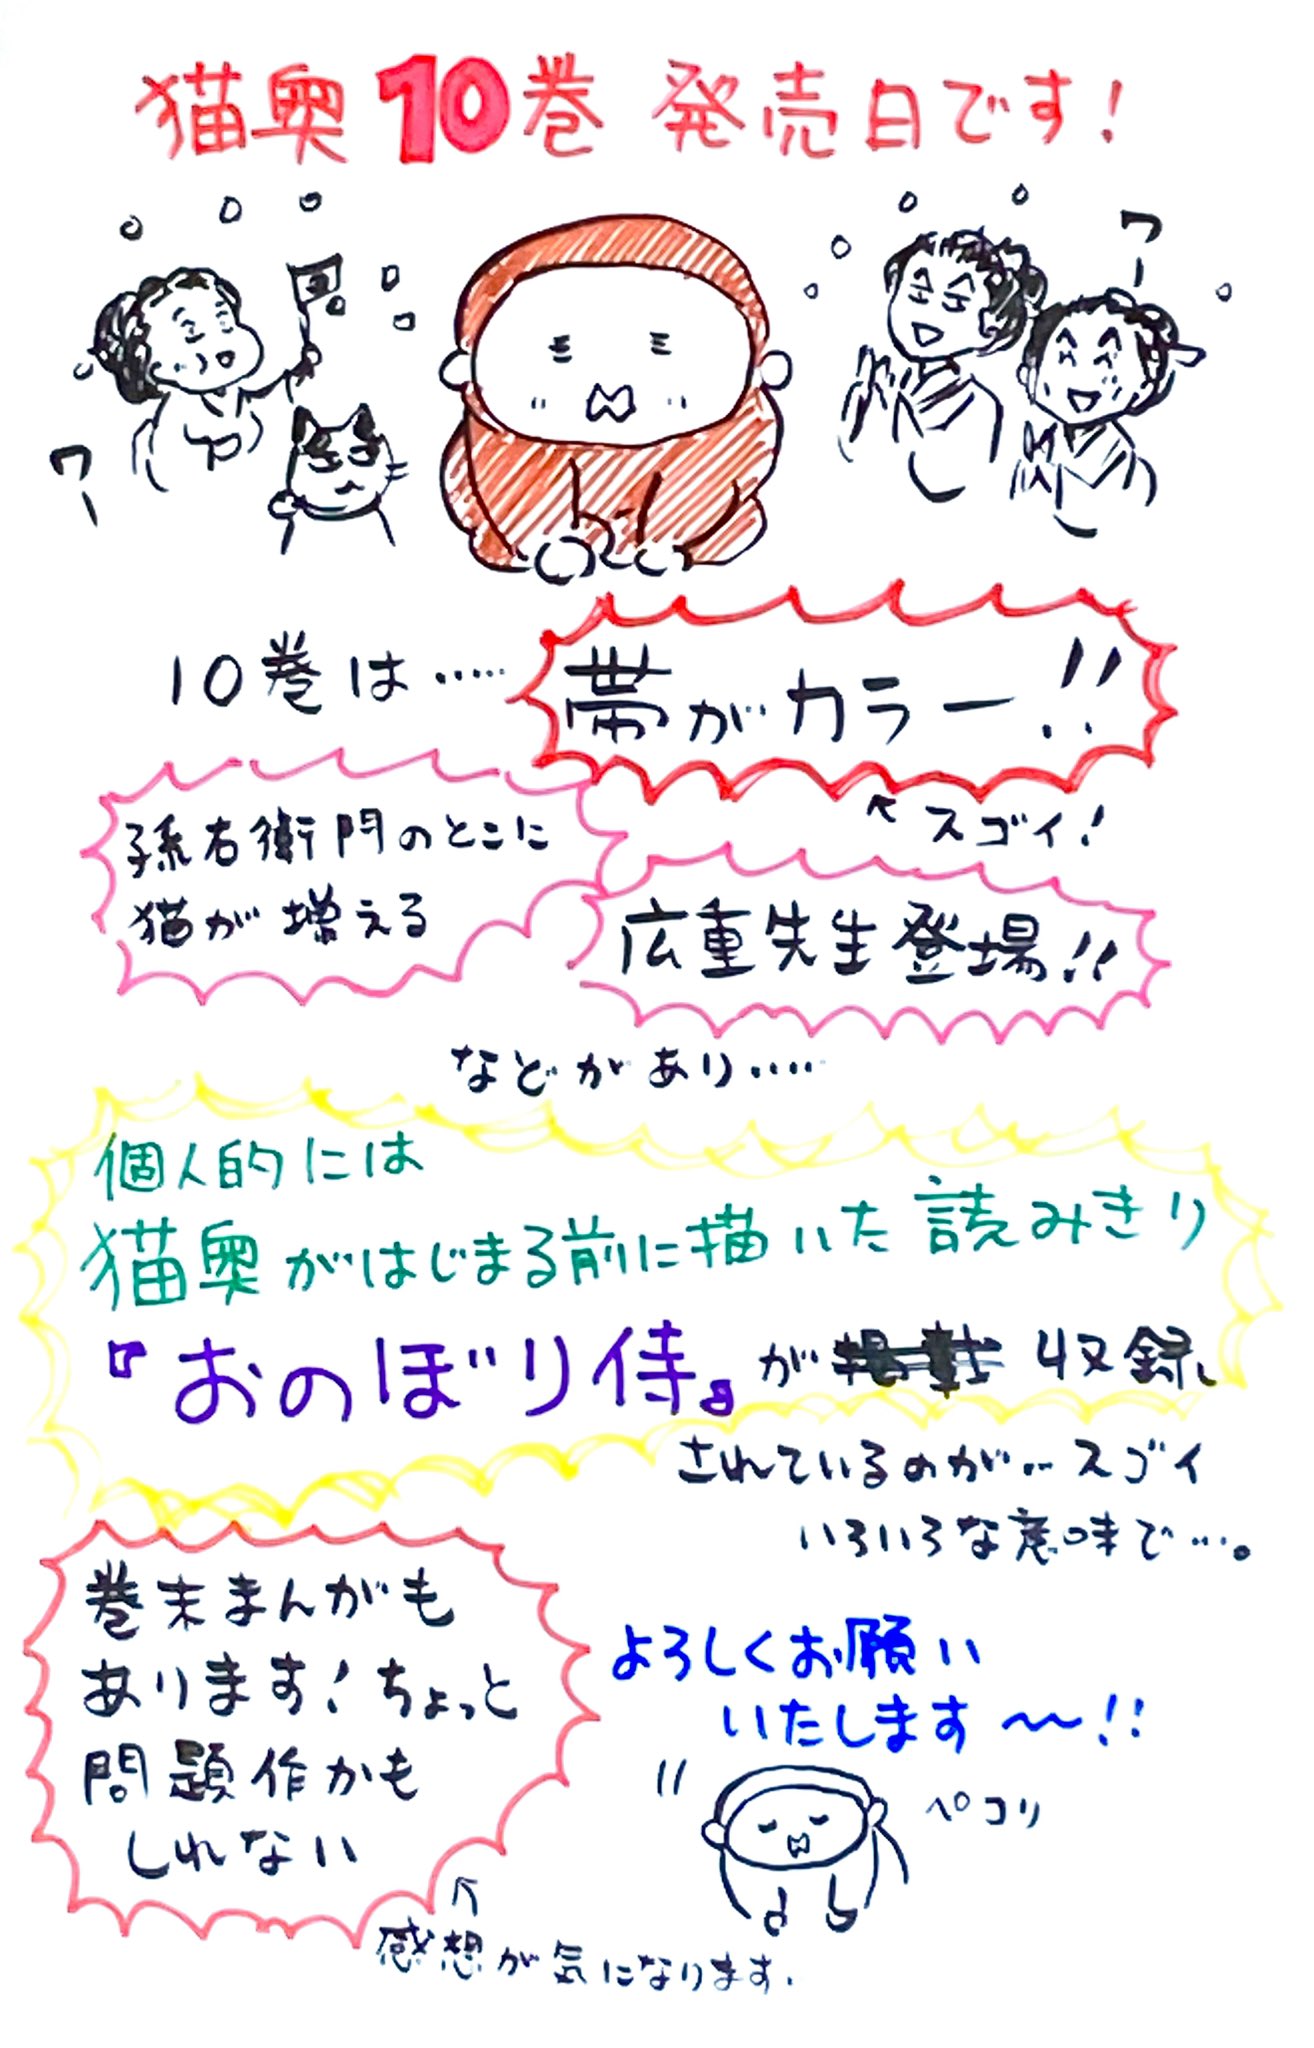 猫奥10巻 発売日です！
ワー
ワー
10巻は……
帯がカラー!!
↖スゴイ！
孫右衛門のとこに
猫が増える
広重先生登場!!
などがあり……
個人的には
猫奥がはじまる前に描いた読みきり
『おのぼり侍』が 収録
されているのが…スゴイ
いろいろな意味で…。
巻末まんがも
あります！ちょっと
問題作かも
しれない
↑
感想が気になります.
よろしくお願い
いたします〜〜!!
ペコリ